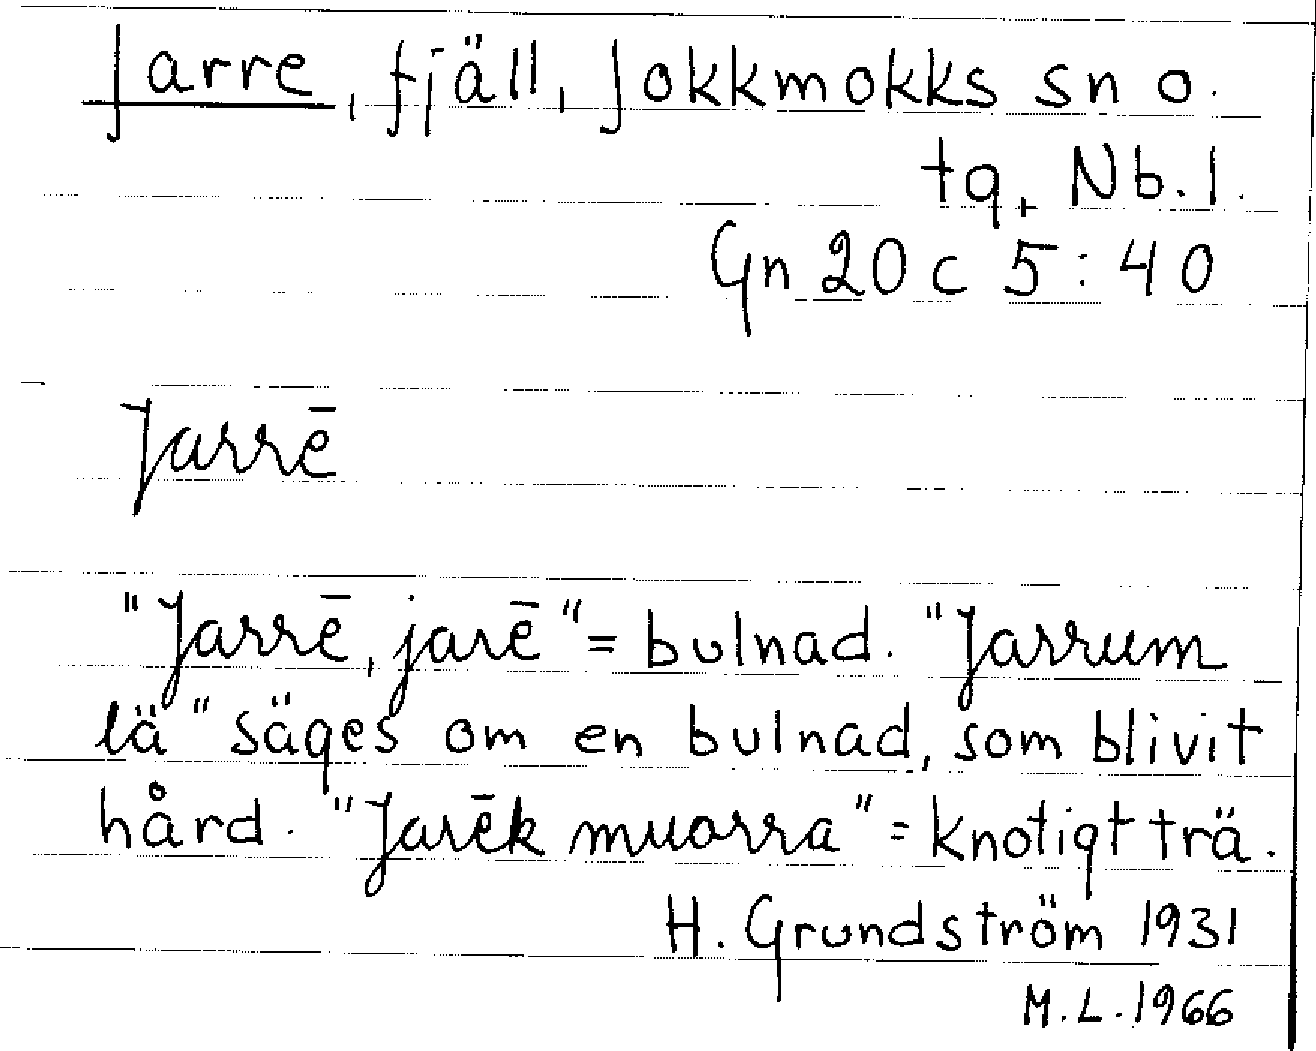 Jarre, fjäll, Jokkmokks sn o.
tg, Nb. l.
Gn 20 c 5:40
Jarrē
"Jarrē, jarē" = bulnad. "Jarrum
lä" säges om en bulnad, som blivit
hård. "Jarēk muorra" = knotigt trä.
H. Grundström 1931
M.L. 1966